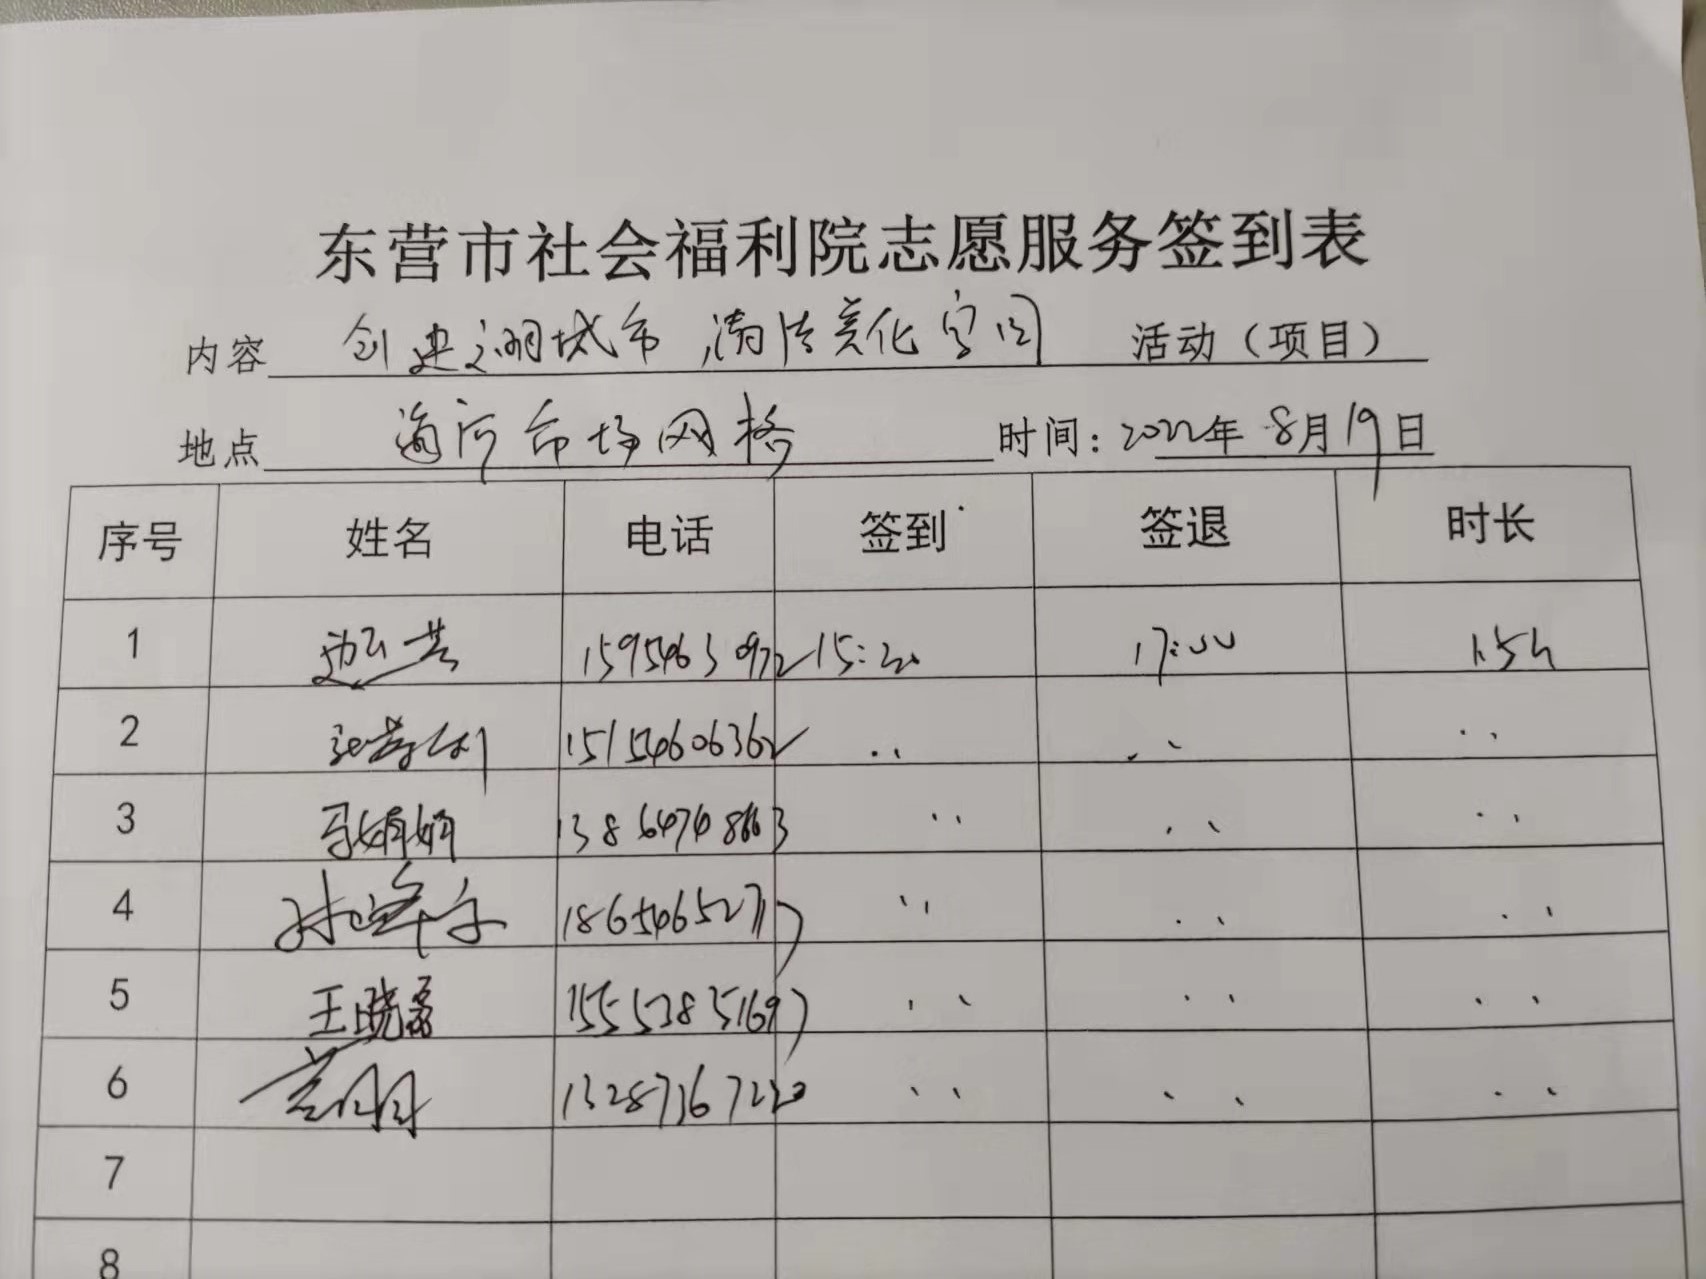 东营市社会福利院志愿服务签到表
内容 创建文明城市，清洁美化空间 活动（项目）
地点 海河市场网格 时间：2022年8月19日
序号 姓名 电话 签到 签退 时长
1 15954630972 15:20 17:00 1.5h
2 15154606362 〃 〃 〃
3 马娟娟 〃 〃 〃
4 〃 〃 〃
5 王晓磊 15553851697 〃 〃 〃
6 13287367220 〃 〃 〃
7
8